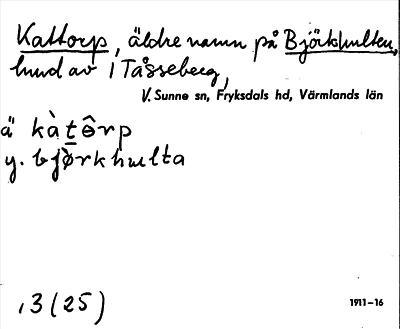 Kattorp, äldre namn på Björkhulten,
hmd av 1 Tåsseberg,
V. Sunne sn, Fryksdals hd, Värmlands län
ä kàtɵ̂rp
y. bjø̀rkhulta
, 3 (25)
1911-16